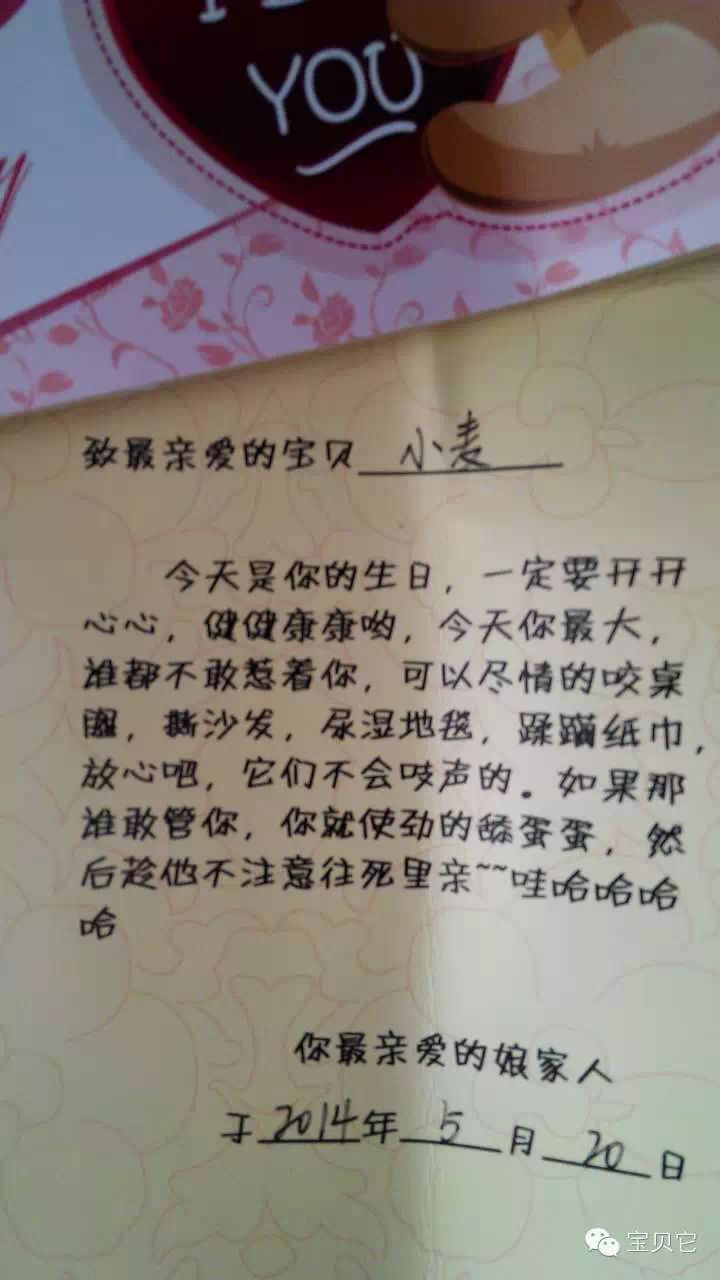 YOU
y
致最亲爱的宝贝 小麦
今天是你的生日，一定要开开
心心，健健康康哟，今天你最大，
谁都不敢惹着你，可以尽情的咬桌
腿，撕沙发，尿湿地毯，蹂躏纸巾，
放心吧，它们不会吱声的。如果那
谁敢管你，你就使劲的舔蛋蛋，然
后趁他不注意往死里亲~~哇哈哈哈
哈
你最亲爱的娘家人
于2014年5月20日
宝贝它